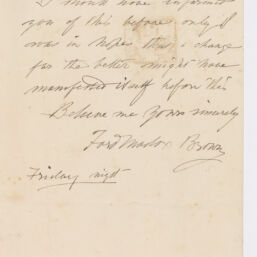 I should have informed
you of this before only I
was in hopes that a change
for the better might have
manifested itself before this
Believe me Yours sincerely
Ford Madox Brown
Friday night